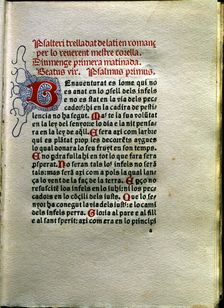 Psalteri trelladat de lati en romanç
per lo reverent mestre corella.
Diumenge primera matinada.
Beatus vir. Psalmus primus.
Benaventurat es lome qui no
es anat en lo consell dels infels
e no es stat en la via dels pec
cadors: ni en la cadira de pesti
lencia no ha segut. Mas te la sua volūtat
en la ley del senyor: e lo dia e la nit pensa
ra en la ley de aqll. E sera axi com larbre
qui es plātat prop les decorrēts aygues
lo qual donara lo seu fruyt en son temps.
E no caura fulla: hi en tot lo que fara sera
psperat. No seran tals los infels no serā
tals: mas serā axi com a pols la qual lança
lo vent de la faç de la terra. E p ço no
resuscitē los infels en lo iuhi: ni los pec
cadors en lo cōsell dels iusts. Que lo se
nyor ha conegut la via dels iusts: e lo cami
dels infels perra. Gloria al pare e al fill
e al sant sperit: axi com era en lo principi